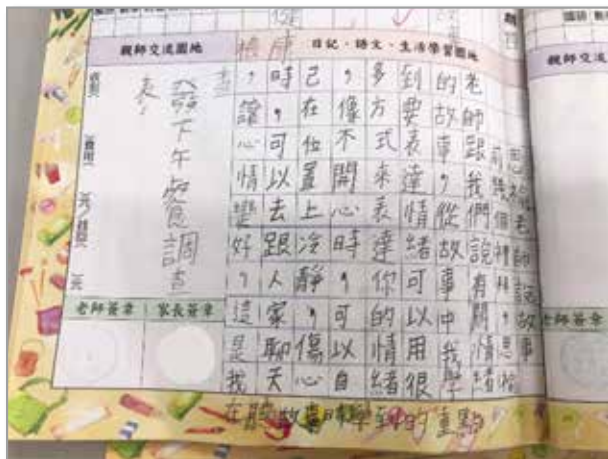 親師交流園地
日記・語文・生活學習園地
親師交流
前幾個禮拜，思
老師跟我們說有關情緒
的故事，從故事中我學
到要表達情緒可以用很
多方式來表達你的情緒
，像不開心時，可以自
己在位置上冷靜，傷心
時，可以去跟人家聊天
，讓心情變好，這是我
在聽故事時學到的重點
發下午餐調查
表
老師簽章
家長簽章
老師簽章